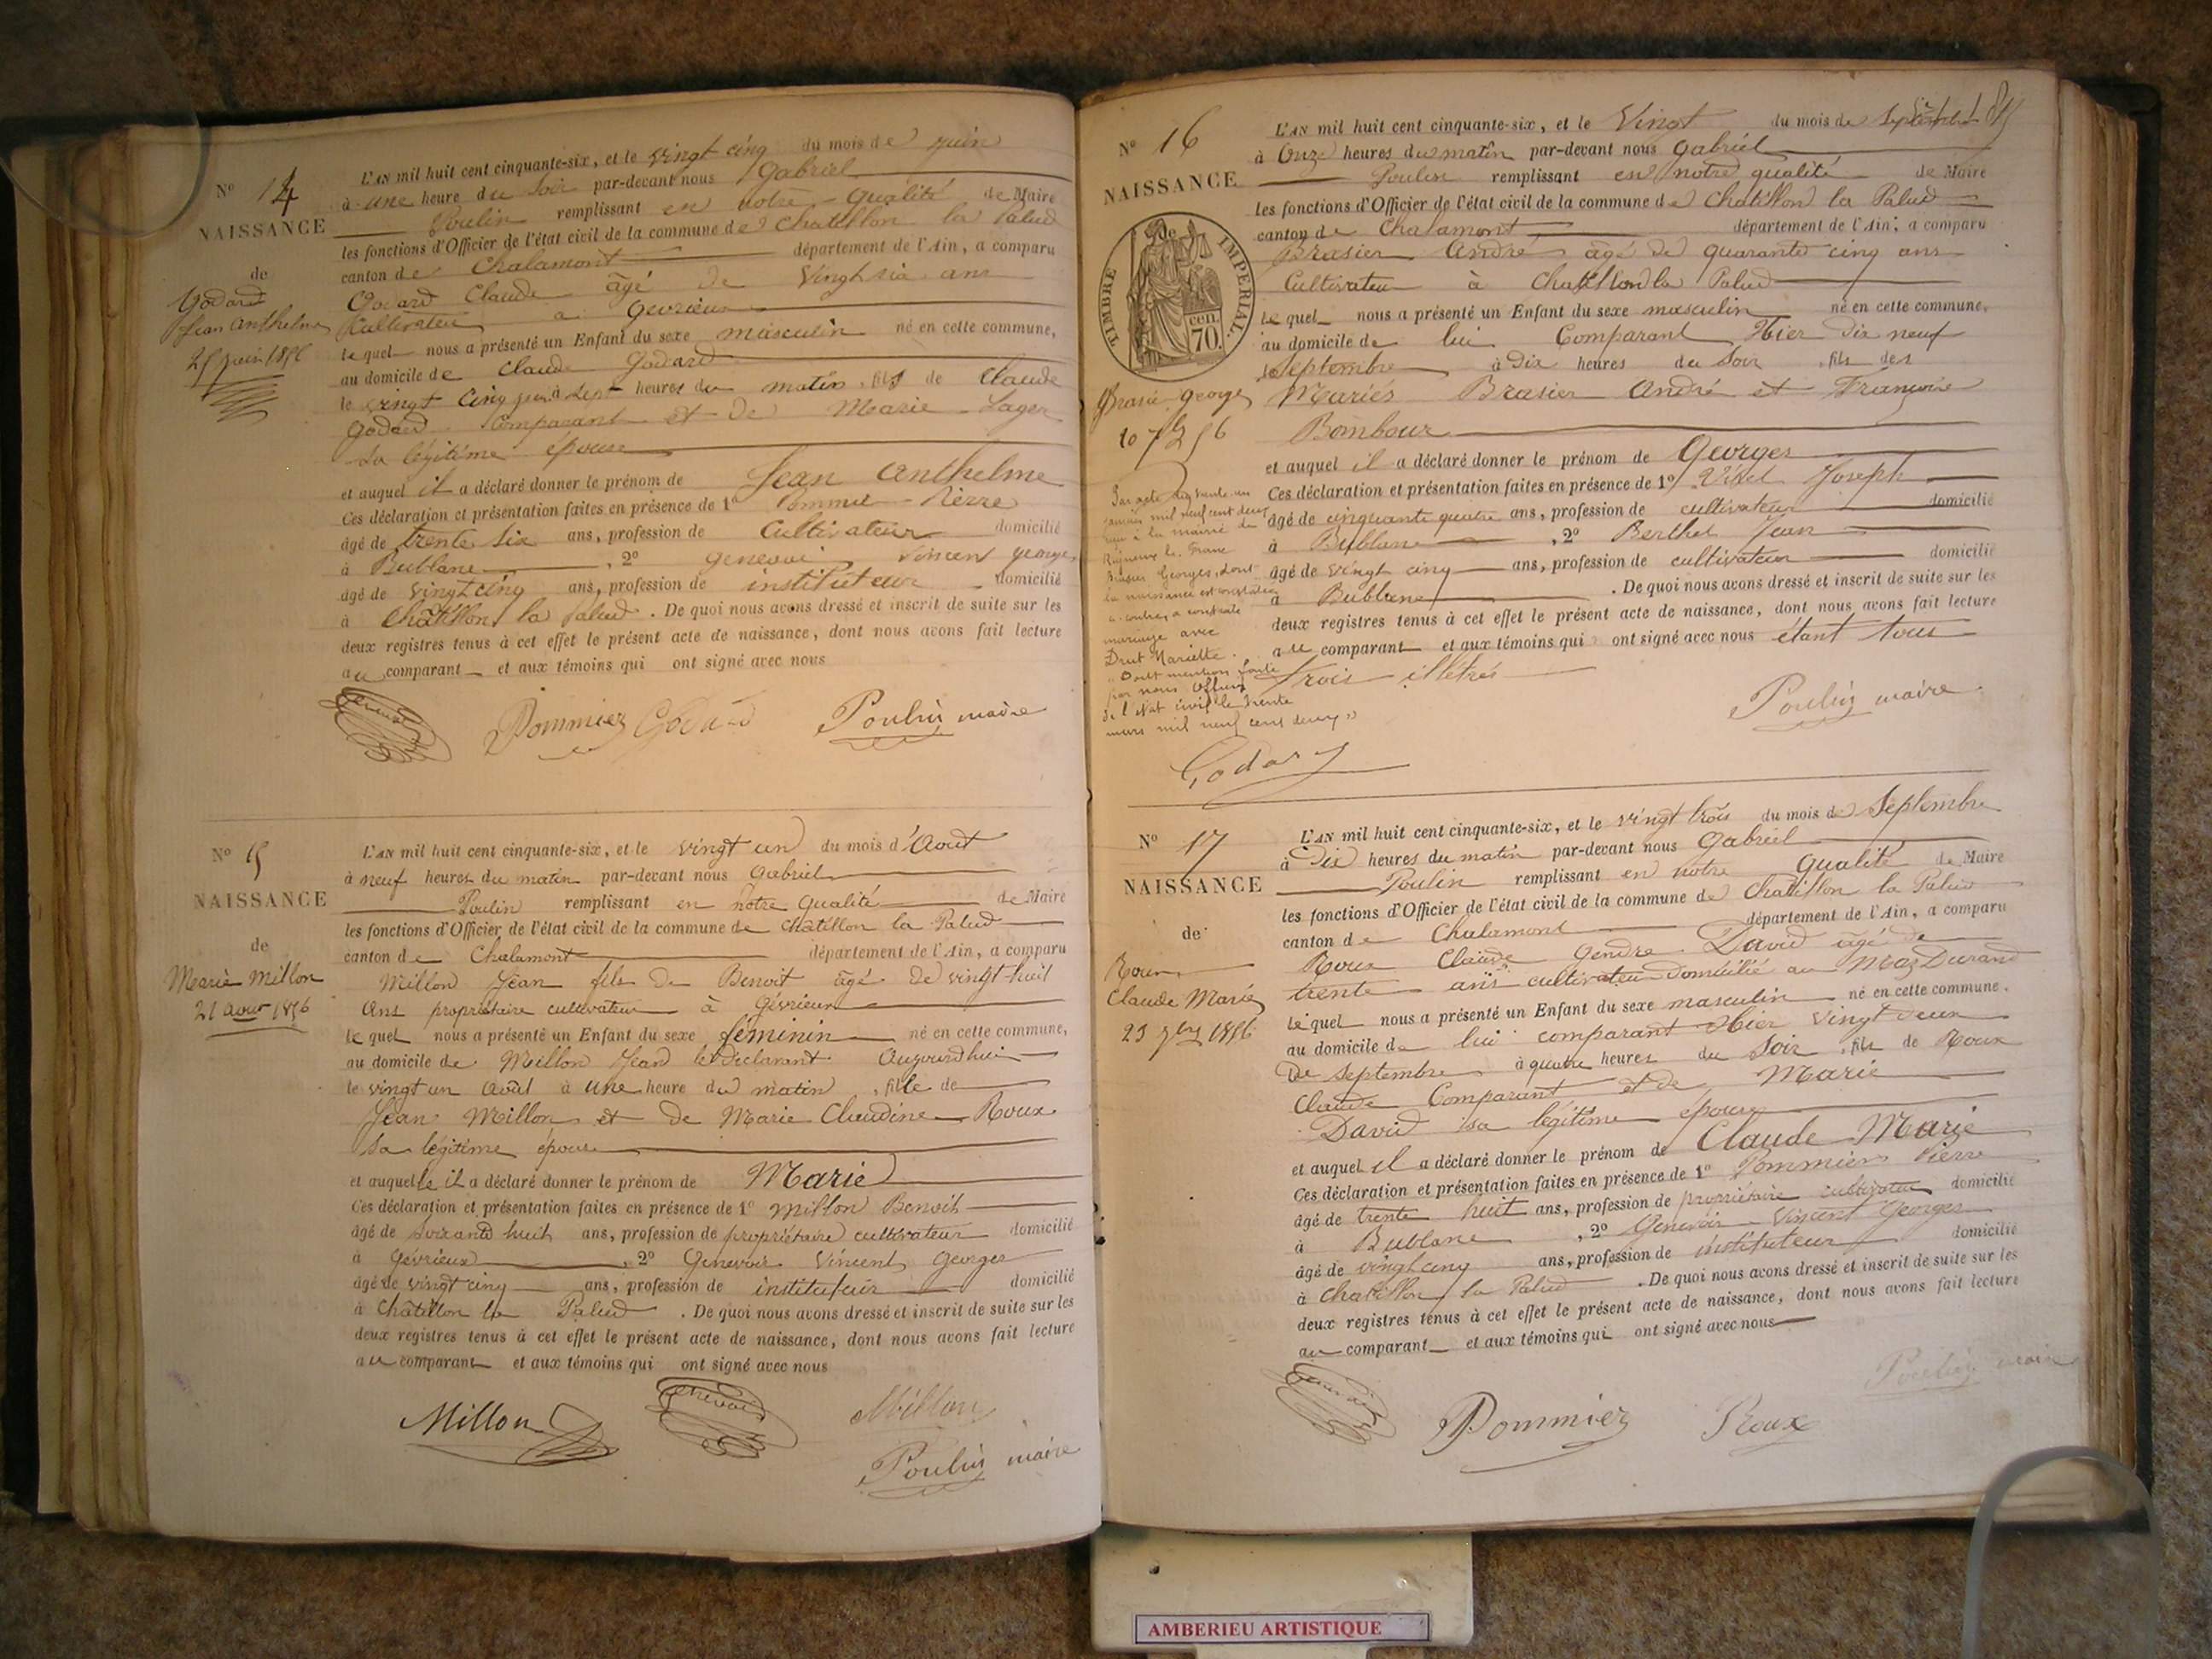 N° 14
NAISSANCE
de
Godard
Jean Anthelme
25 juin 1856
L'AN mil huit cent cinquante-six, et le vingt cinq du mois de juin
à une heure du soir par-devant nous Gabriel
Poulin remplissant en notre qualité de Maire
les fonctions d'Officier de l'état civil de la commune de Chatillon la Palud
canton de Chalamont département de l'Ain, a comparu
Godard Claude âgé de Vingt six ans
Cultivateur a Gevrieux
lequel nous a présenté un Enfant du sexe masculin né en cette commune,
au domicile de Claude Godard
le vingt cinq juin à sept heures du matin, fils de Claude
Godard Comparant et de Marie Lager
sa légitime épouse
et auquel il a déclaré donner le prénom de Jean Anthelme
Ces déclaration et présentation faites en présence de 1° Pommier Pierre
âgé de trente six ans, profession de Cultivateur domicilié
à Bublane, 2° Genevoi Vincent Georges
âgé de vingt cinq ans, profession de instituteur domicilié
à Châtillon la Palud. De quoi nous avons dressé et inscrit de suite sur les
deux registres tenus à cet effet le présent acte de naissance, dont nous avons fait lecture
au comparant et aux témoins qui ont signé avec nous
Pommier Godard Poulin maire
N° 15
NAISSANCE
de
Marie Millon
21 aout 1856
L'AN mil huit cent cinquante-six, et le vingt un du mois d'Août
à neuf heures du matin par-devant nous Gabriel
Poulin remplissant en notre qualité de Maire
les fonctions d'Officier de l'état civil de la commune de Chatillon la Palud
canton de Chalamont département de l'Ain, a comparu
Millon Jean fils de Benoit âgé de vingt huit
Ans propriétaire cultivateur à Gévrieux
lequel nous a présenté un Enfant du sexe féminin né en cette commune,
au domicile de Millon Jean le déclarant Aujourdhui
le vingt un Août à une heure du matin, fille de
Jean Millon et de Marie Claudine Roux
sa légitime épouse
et auquelle il a déclaré donner le prénom de Marie
Ces déclaration et présentation faites en présence de 1° Millon Benoit
âgé de soixante huit ans, profession de propriétaire cultivateur domicilié
à Gévrieux, 2° Genevois Vincent Georges
âgé de vingt cinq ans, profession de instituteur domicilié
à Châtillon la Palud. De quoi nous avons dressé et inscrit de suite sur les
deux registres tenus à cet effet le présent acte de naissance, dont nous avons fait lecture
au comparant et aux témoins qui ont signé avec nous
Millon Genevois Millon
Poulin maire
N° 16
NAISSANCE
de
TIMBRE IMPERIAL.
70 cen.
Georges
Par acte du trente un
janvier mil neuf cent deux
reçu à la mairie de
Georges, dont
la naissance est constatée
ci-contre, a contracté
mariage avec
Drut Mariette.
"Dont mention faite
par nous Officier
de l'état civil le trente
mars mil neuf cent deux"
Godard
L'AN mil huit cent cinquante-six, et le Vingt du mois de Septembre
à Onze heures du matin par-devant nous Gabriel
Poulin remplissant en notre qualité de Maire
les fonctions d'Officier de l'état civil de la commune de Chatillon la Palud
canton de Chalamont département de l'Ain, a comparu
Brasier André âgé de quarante cinq ans
Cultivateur à Chatillon la Palud
lequel nous a présenté un Enfant du sexe masculin né en cette commune,
au domicile de lui Comparant Hier dix neuf
Septembre à Dix heures du Soir, fils des
Mariés Brasier André et Françoise
Bombour
et auquel il a déclaré donner le prénom de Georges
Ces déclaration et présentation faites en présence de 1° Joseph
âgé de cinquante quatre ans, profession de cultivateur domicilié
à Bublane, 2° Berthet Jean
âgé de vingt cinq ans, profession de cultivateur domicilié
à Bublane. De quoi nous avons dressé et inscrit de suite sur les
deux registres tenus à cet effet le présent acte de naissance, dont nous avons fait lecture
au comparant et aux témoins qui ont signé avec nous étant tous
trois illétrés
Poulin maire
N° 17
NAISSANCE
de
Roux
Claude Marie
23 7bre 1856
L'AN mil huit cent cinquante-six, et le vingt trois du mois de Septembre
à Dix heures du matin par-devant nous Gabriel
Poulin remplissant en notre qualité de Maire
les fonctions d'Officier de l'état civil de la commune de Chatillon la Palud
canton de Chalamont département de l'Ain, a comparu
Roux Claude Gendre David âgé de
trente ans cultivateur domicilié au Mas Durand
lequel nous a présenté un Enfant du sexe masculin né en cette commune,
au domicile de lui comparant Hier vingt deux
De septembre à quatre heures du Soir, fils de Roux
Claude Comparant et de Marie
David sa légitime épouse
et auquel il a déclaré donner le prénom de Claude Marie
Ces déclaration et présentation faites en présence de 1° Pommier Pierre
âgé de trente huit ans, profession de propriétaire cultivateur domicilié
à Bublane, 2° Genevois Vincent Georges
âgé de vingt cinq ans, profession de instituteur domicilié
à Chatillon la Palud. De quoi nous avons dressé et inscrit de suite sur les
deux registres tenus à cet effet le présent acte de naissance, dont nous avons fait lecture
au comparant et aux témoins qui ont signé avec nous
Pommier Roux Poulin maire
AMBERIEU ARTISTIQUE